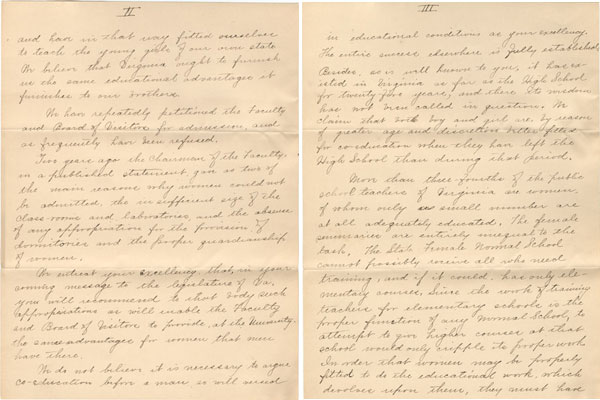 II
and have in that way fitted ourselves
to teach the young girls of our own state.
We believe that Virginia ought to furnish
us the same educational advantages it
furnishes to our brothers.
We have repeatedly petitioned the Faculty
and Board of Visitors for admission, and
as frequently have been refused.
Two years ago the Chairman of the Faculty,
in a published statement, gave as two of
the main reasons why women could not
be admitted, the insufficient size of the
class-rooms and laboratories, and the absence
of any appropriation for the provision of
dormitories and the proper guardianship
of women.
We entreat your excellency, that, in your
coming message to the legislature of Va.,
you will recommend to that body such
appropriations as will enable the Faculty
and Board of Visitors to provide, at the University,
the same advantages for women that men
have there.
We do not believe it is necessary to argue
co-education before a man so well versed
III
in educational conditions as your excellency.
The entire success elsewhere is fully established.
Besides, as is well known to you, it has ex-
isted in Virginia as far as the High School
for twenty five years, and there its wisdom
has not been called in question. We
claim that both boy and girl are, by reason
of greater age and discretion better fitted
for co-education when they have left the
High School than during that period.
More than three-fourths of the public
school teachers of Virginia are women,
of whom only a small number are
at all adequately educated. The female
seminaries are entirely unequal to the
task. The State Female Normal School
cannot possibly receive all who need
training, and if it could, has only ele-
mentary courses. Since the work of training
teachers for elementary schools is the
proper function of any Normal School, to
attempt to give higher courses at that
school would only cripple its proper work.
In order that women may be properly
fitted to do the educational work, which
devolves upon them, they must have